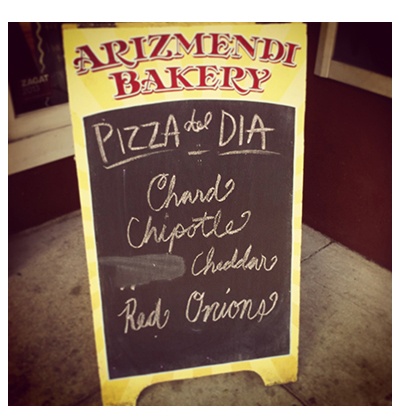 ZAGAT
ARIZMENDI
BAKERY
PIZZA del DIA
Chard
Chipotle
Cheddar
Red Onions